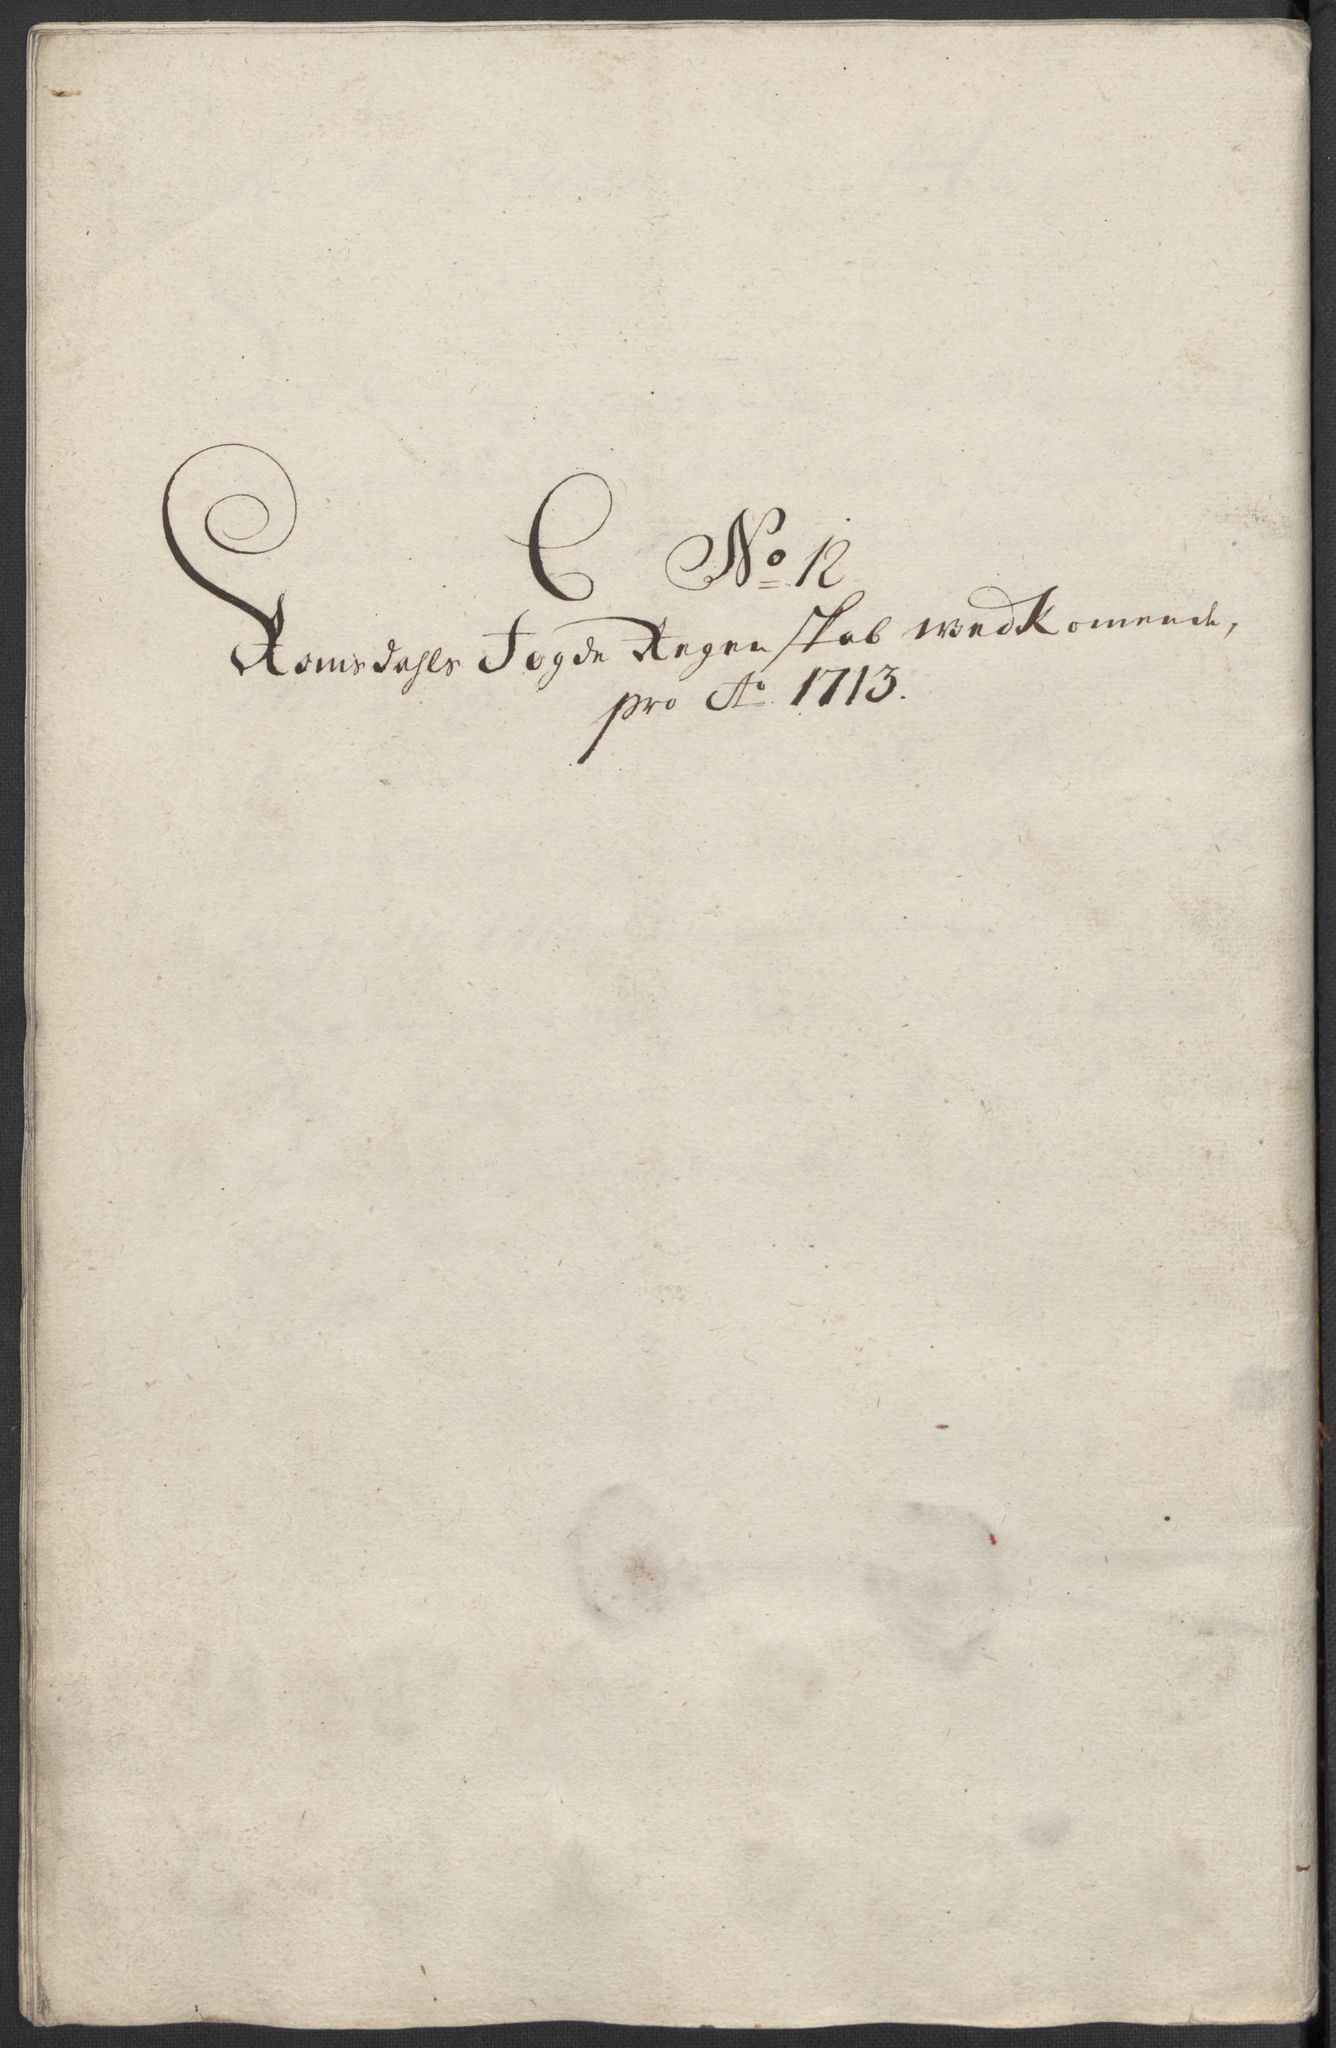 C No 12
Romsdahls Fogde Regenskab wedkomende,
pro Ao 1713.